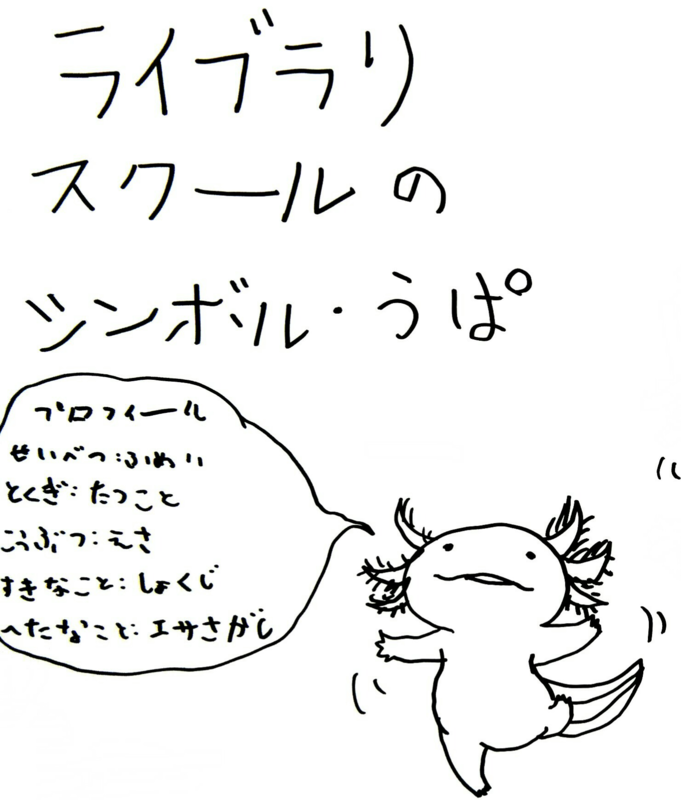 ライブラリ
スクールの
シンボル・うぱ
プロフィール
せいべつ:ふめい
とくぎ:たつこと
こうぶつ:えさ
すきなこと:しょくじ
へたなこと:エサさがし